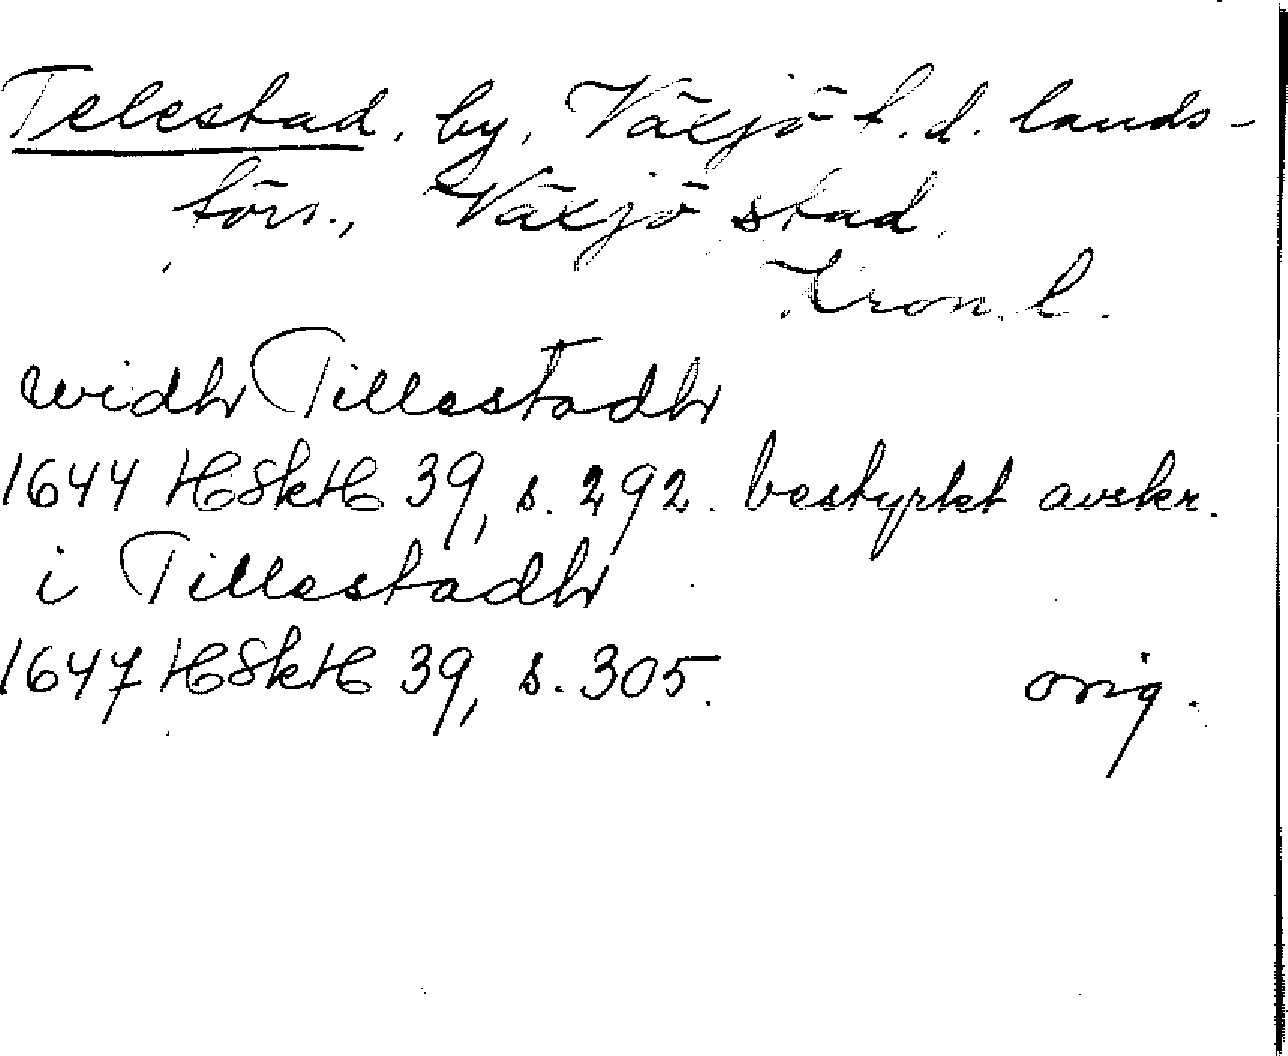 Telestad, by, Växjö f.d. lands-
förs., Växjö stad,
Kron. l.
widh Tillestadh
1644 HSkH 39, s. 292. bestyrkt avskr.
i Tillestadh
1647 HSkH 39, s. 305. orig.